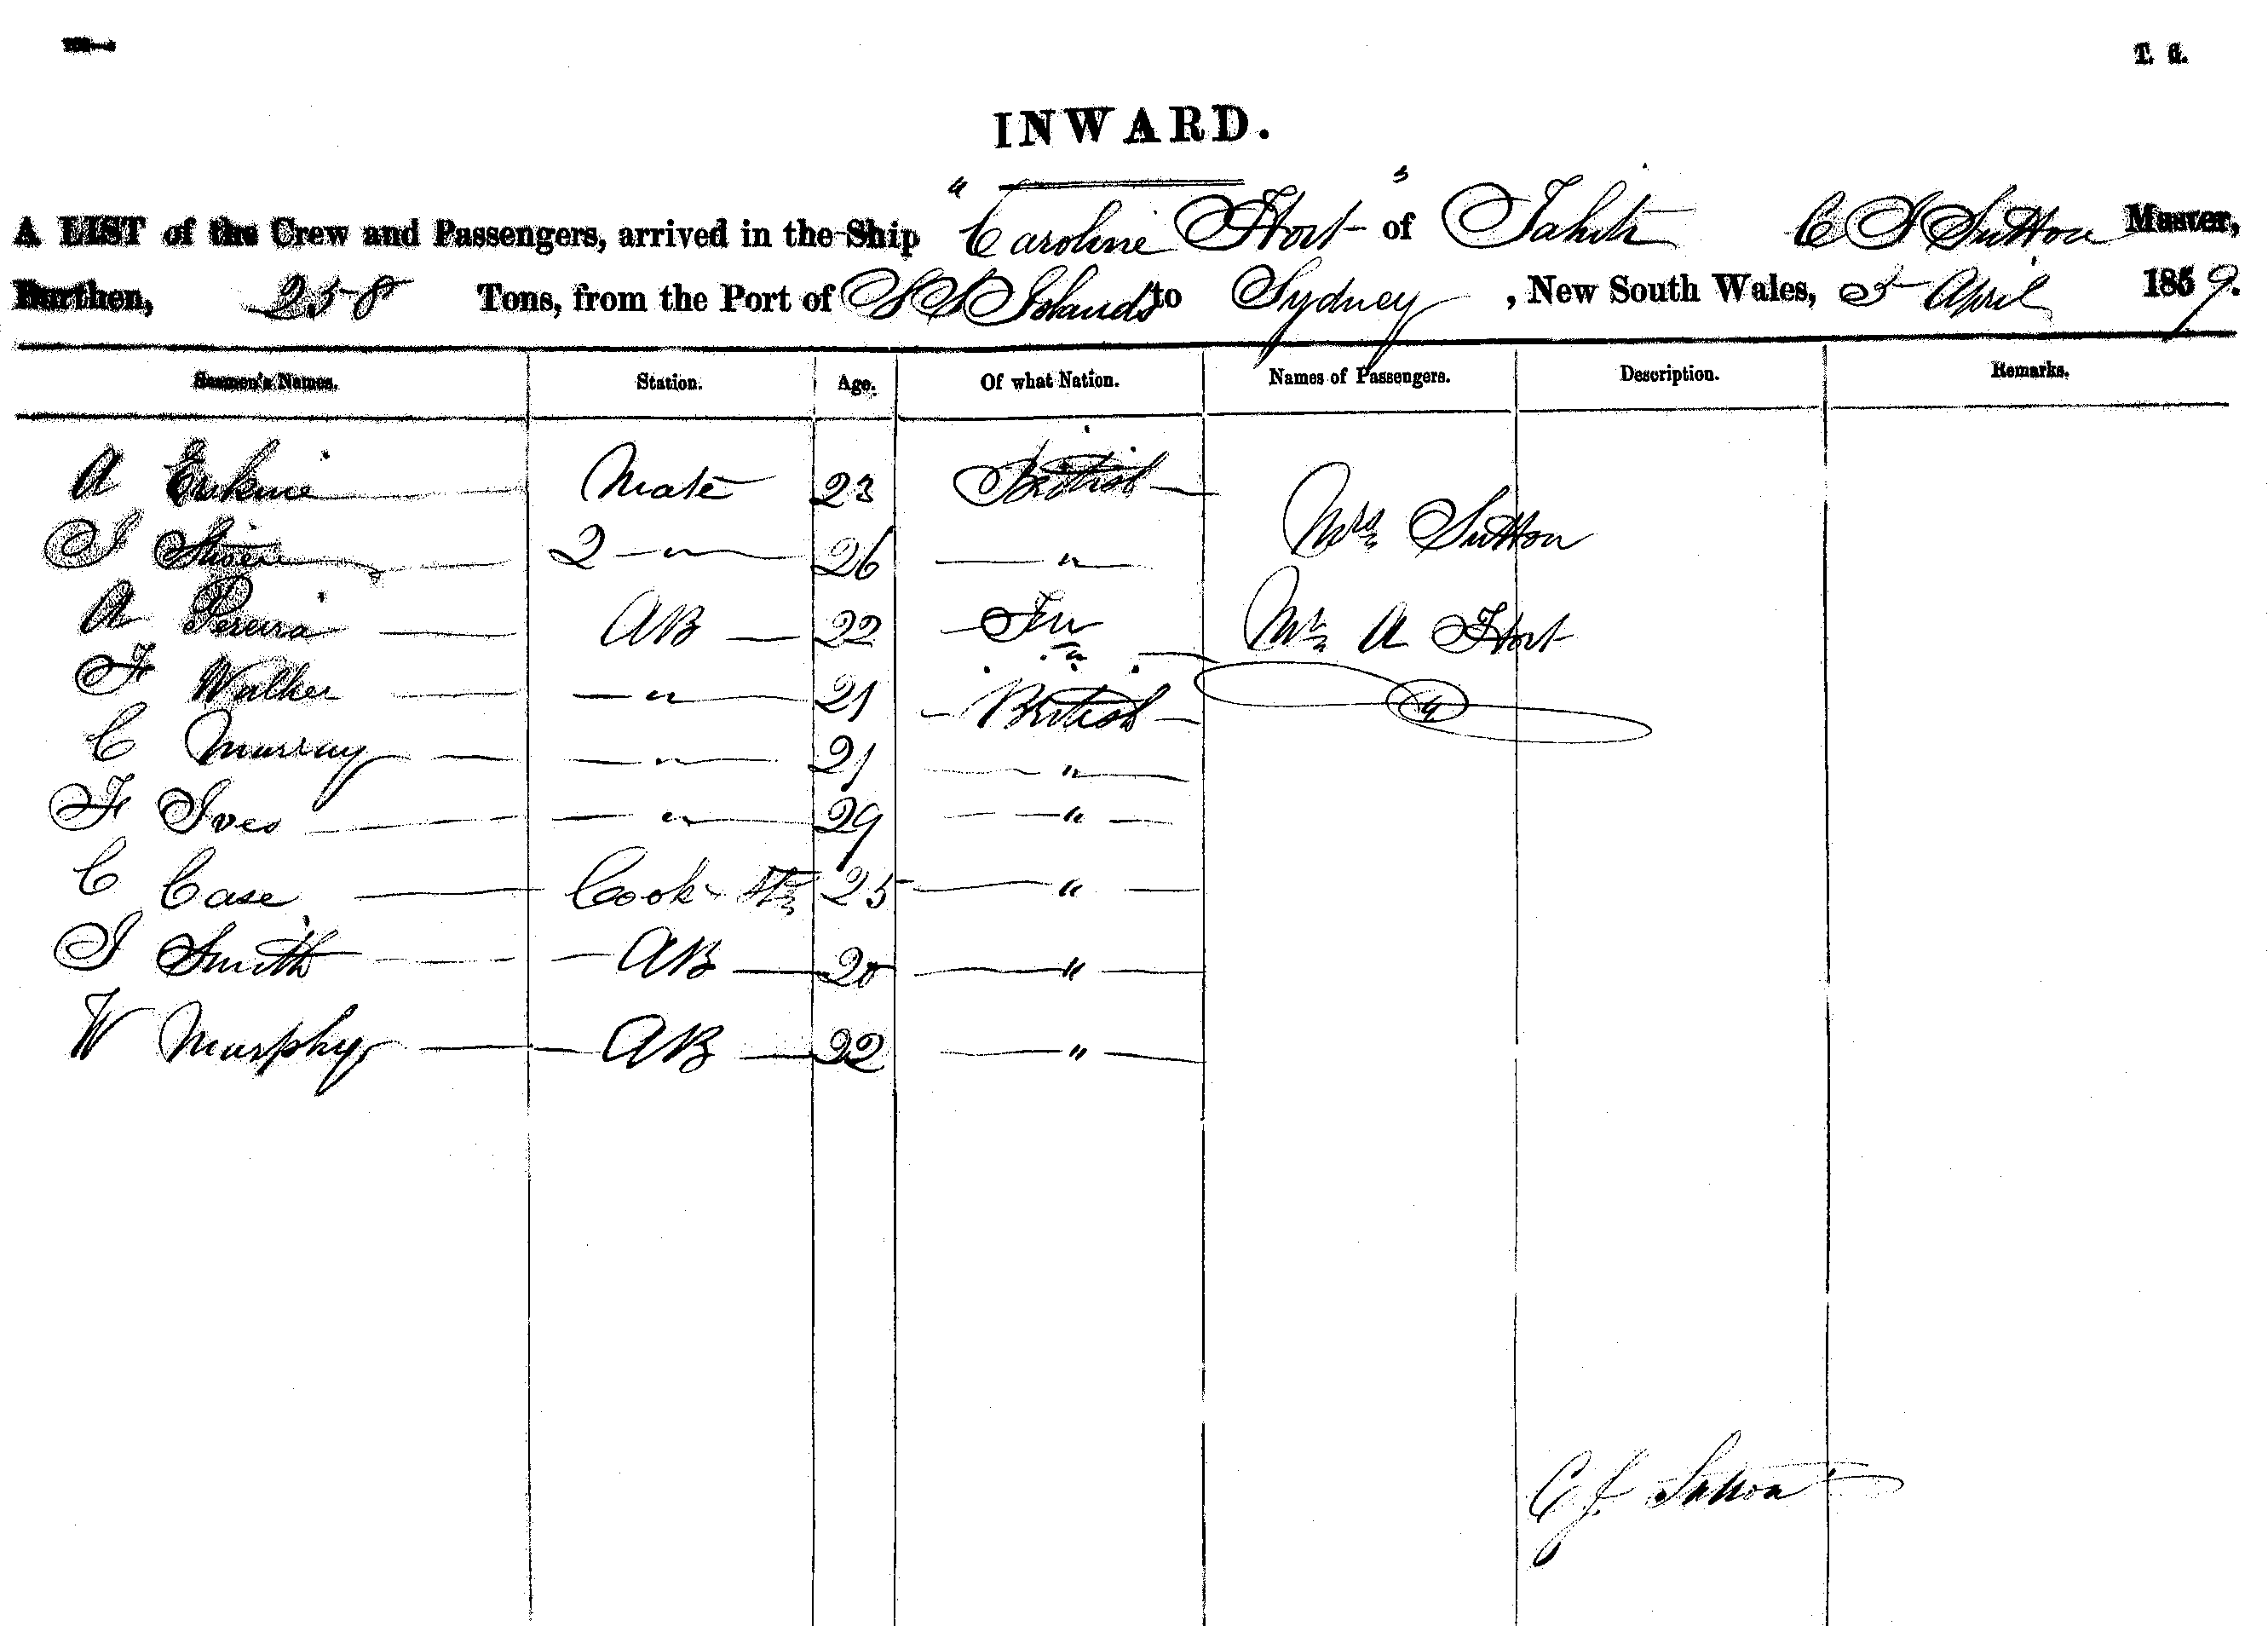 T. G.
INWARD.
A LIST of the Crew and Passengers, arrived in the Ship "Caroline Hort" of Tahiti C J Sutton Master,
Burthen, 258 Tons, from the Port of S S Islands to Sydney, New South Wales, 5 April 1859.
Seamen's Names. Station. Age. Of what Nation. Names of Passengers. Description. Remarks.
A Erskine Mate 23 British
Mrs Sutton
J 2 " 26 "
A Pereira AB 22
Mr A Hort
F Walker " 21 British
C Murray " 21 "
F Ives " 29 "
C Case Cook & St 25 "
J Smith AB 20 "
W Murphy AB 22 "
C J. Sutton